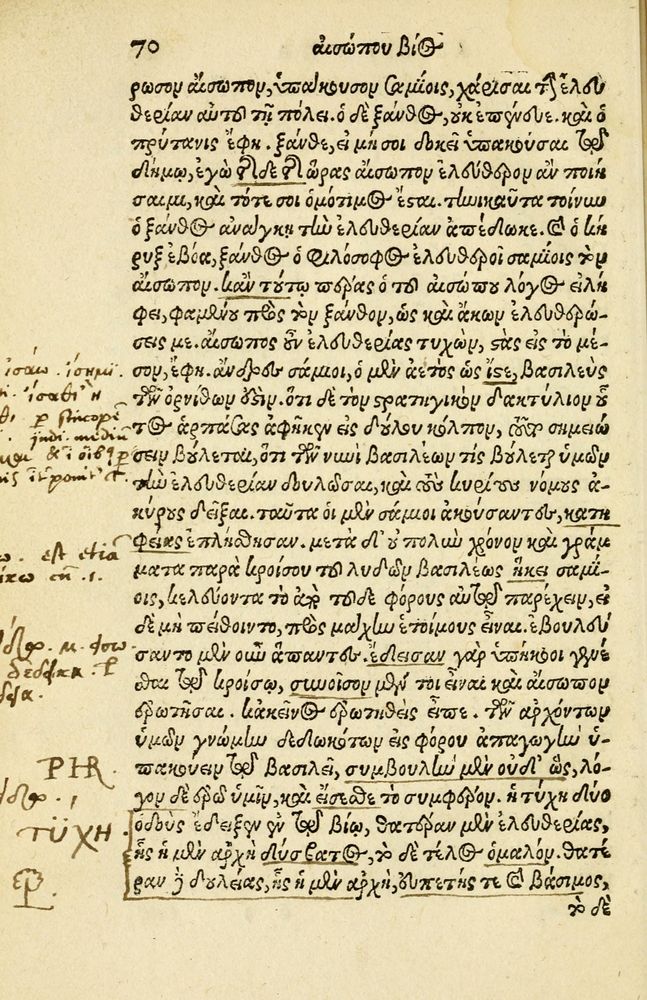 70 αἰσώπου βίος
ρωσον αἴσωπον, ὑπάκουσον σαμίοις, χάρισαι τὴν ἐλευ
θερίαν αὐτοῦ τῇ πόλει. ὁ δὲ ξάνθος, οὐκ ἐπένευε. καὶ ὁ
πρύτανις ἔφη. ξάνθε, εἰ μή σοι δοκεῖ ὑπακοῦσαι τῷ
δήμῳ, ἐγὼ τῆσδε τῆς ὥρας αἴσωπον ἐλεύθερον ἂν ποιή
σαιμι, καὶ τότε σοι ὁμότιμος ἔσται. τηνικαῦτα τοίνυν
ὁ ξάνθος ἀνάγκῃ τὴν ἐλευθερίαν ἀπέδωκε. καὶ ὁ κῆ
ρυξ ἐβόα, ξάνθος ὁ φιλόσοφος ἐλευθεροῖ σαμίοις τὸν
αἴσωπον. κἀν τούτῳ πέρας ὁ τοῦ αἰσώπου λόγος εἰλή
φει, φαμένου πρὸς τὸν ξάνθον, ὡς καὶ ἄκων ἐλευθερώ-
σεις με. αἴσωπος οὖν ἐλευθερίας τυχών, στὰς εἰς τὸ μέ-
σον, ἔφη. ἄνδρες σάμιοι, ὁ μὲν ἀετὸς ὡς ἴστε, βασιλεὺς
τῶν ὀρνίθων ἐστίν. ὅτι δὲ τὸν στρατηγικὸν δακτύλιον οὗ
τος ἁρπάσας ἀφῆκεν εἰς δούλου κόλπον, τοῦτο σημειώ
σειν βούλεται, ὅτι τῶν νυνὶ βασιλέων τὶς βούλεται ὑμῶν
τὴν ἐλευθερίαν δουλῶσαι, καὶ τοὺς κυρίους νόμους ἀ-
κύρους δεῖξαι. ταῦτα οἱ μὲν σάμιοι ἀκούσαντες, κατη
φείας ἐπλήσθησαν. μετὰ δ' οὐ πολὺν χρόνον καὶ γράμ
ματα παρὰ κροίσου τοῦ λυδῶν βασιλέως ἧκει σαμί-
οις, κελεύοντα τὸ ἀπὸ τοῦδε φόρους αὐτῷ παρέχειν, εἰ
δὲ μὴ πείθοιντο, πρὸς μάχην ἑτοίμους εἶναι. ἐβουλεύ
σαντο μὲν οὖν ἅπαντες. ἔδεισαν γὰρ ὑπήκοοι γενέ
σθαι τῷ κροίσῳ, συνοῖσον μέν τοι εἶναι καὶ αἴσωπον
ἐρωτῆσαι. κἀκεῖνος ἐρωτηθεὶς εἶπε. τῶν ἀρχόντων
ὑμῶν γνώμην δεδωκότων εἰς φόρου ἀπαγωγὴν ὑ-
πακούειν τῷ βασιλεῖ, συμβουλὴν μὲν οὐδ' ὣς, λό-
γον δὲ ἐρῶ ὑμῖν, καὶ εἴσεσθε τὸ συμφέρον. ἡ τύχη δύο
ὁδοὺς ἔδειξεν ἐν τῷ βίῳ, θατέραν μὲν ἐλευθερίας,
ἧς ἡ μὲν ἀρχὴ δύσβατος, τὸ δὲ τέλος ὁμαλόν. θατέ
ραν δὲ δουλείας, ἧς ἡ μὲν ἀρχὴ, εὐπετής τε καὶ βάσιμος,
τὸ δὲ
ΤΥΧΗ